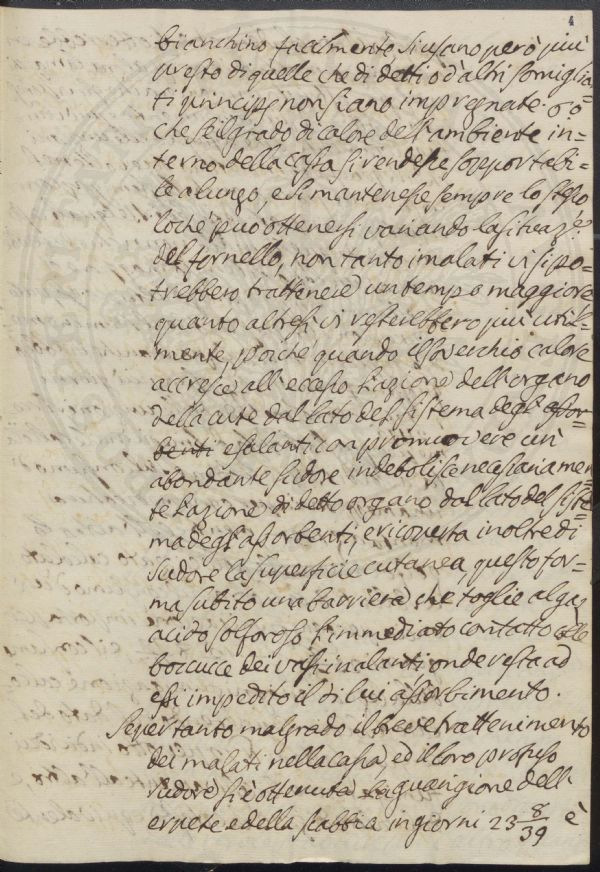 4
bianchino facilmente, si usano però più
presto di quelle che di detti o d'altri somiglian=
ti principj non siano impregnate. 6.º
che se il grado di calore dell'ambiente in=
terno della cassa si rendesse sopportabi=
le a lungo, e si mantenesse sempre lo stesso
loché può ottenersi variando la situaz.e
del fornello, non tanto i malati vi si po=
trebbero trattenere un tempo maggiore
quanto altresì vi resterebbero più util=
mente, poiché quando il soverchio calore
accresce all'eccesso l'azione dell'organo
della cute dal lato del sistema degli assor=
benti esalanti con promuovere un
abondante sudore indebolisce necessariamen=
te l'azione di detto organo dal lato del siste=
ma degli assorbenti, e ricoperta inoltre di
sudore la superficie cutanea, questo for=
ma subito una barriera che toglie al gaz
acido solforoso l'immediato contatto colle
boccucce dei vasi inalanti onde resta ad
essi impedito il di lui assorbimento.
Se per tanto malgrado il breve trattenimento
dei malati nella cassa, ed il loro profuso
sudore si è ottenuta la guarigione dell'
erpete e della scabbia in giorni 23 8/39 è